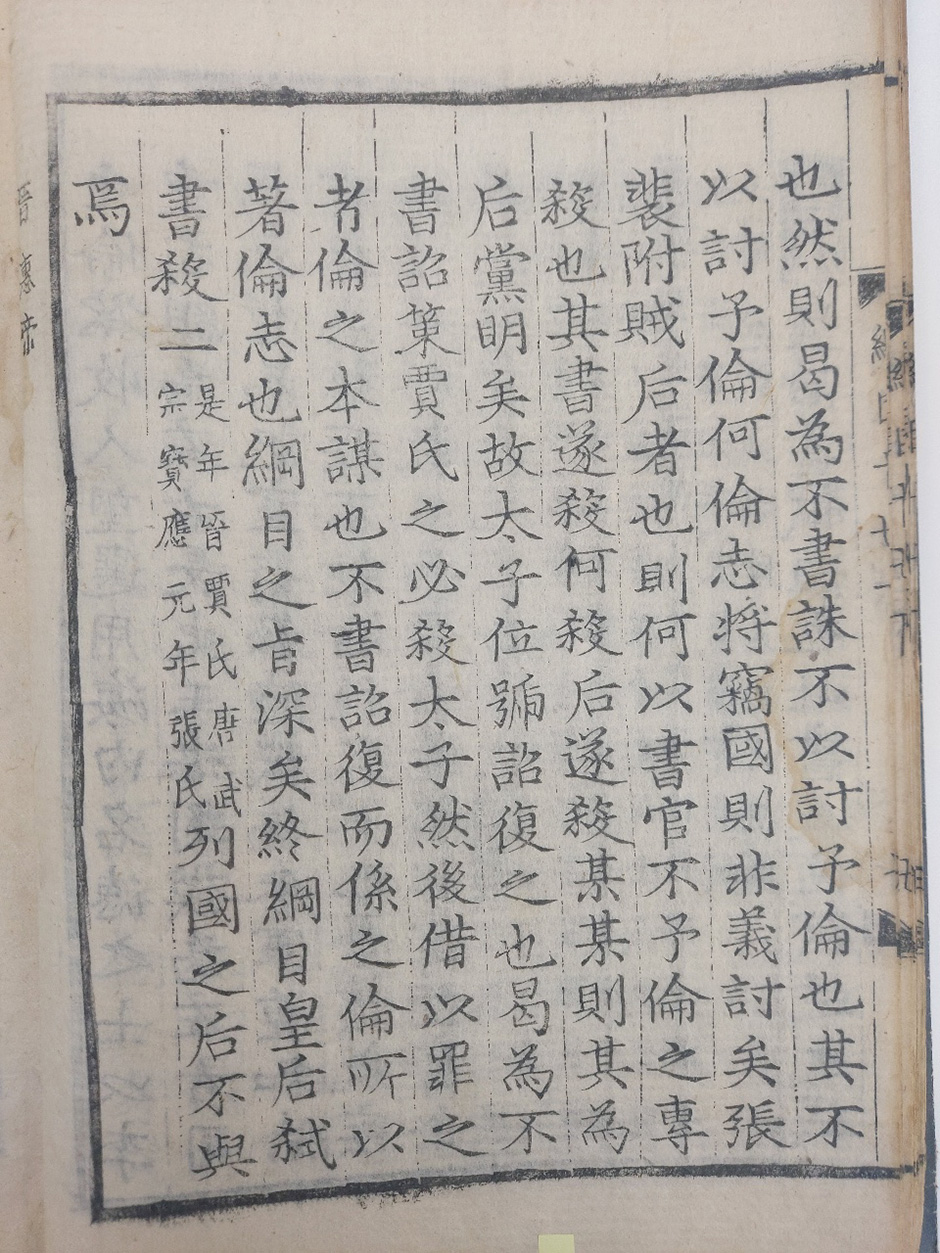 也然則曷為不書誅不以討予倫也其不
以討予倫何倫志將竊國則非義討矣張
裴附賊后者也則何以書官不予倫之專
殺也其書遂殺何殺后遂殺某某則其為
后黨明矣故太子位號詔復之也曷為不
書詔策賈氏之必殺太子然後借以罪之
者倫之本謀也不書詔復而係之倫所以
著倫志也綱目之旨深矣終綱目皇后弒
書殺二
是年晉賈氏唐武
宗寶應元年張氏
列國之后不與
焉